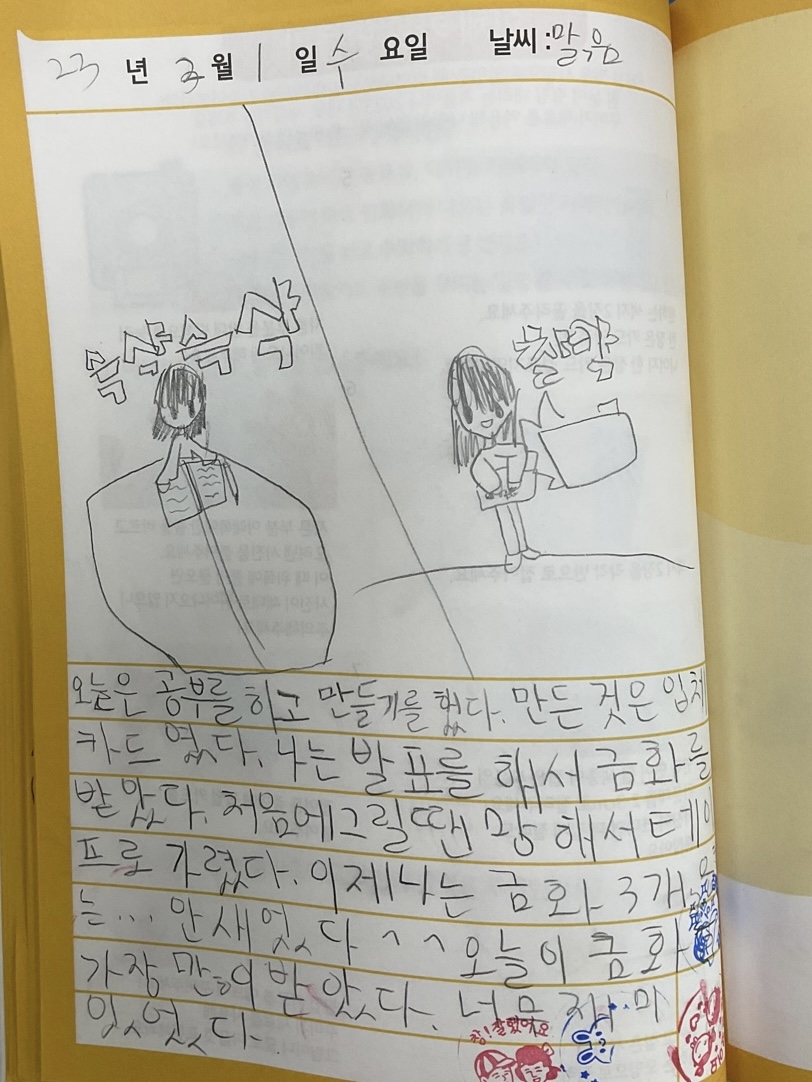 23 년 3월 1 일 수 요일 날씨:맑음
슥삭슥삭
찰칵
오늘은 공부를 하고 만들기를 했다. 만든 것은 입체
카드 였다. 나는 발표를 해서 금화를
받았다. 처음에그릴땐 망해서 테이
프로 가렸다. 이제나는 금화 3개,
는... 안새었다 ^^ 오늘이 금화
가장 많이 받았다. 너무 재미
있었다.
참! 잘했어요